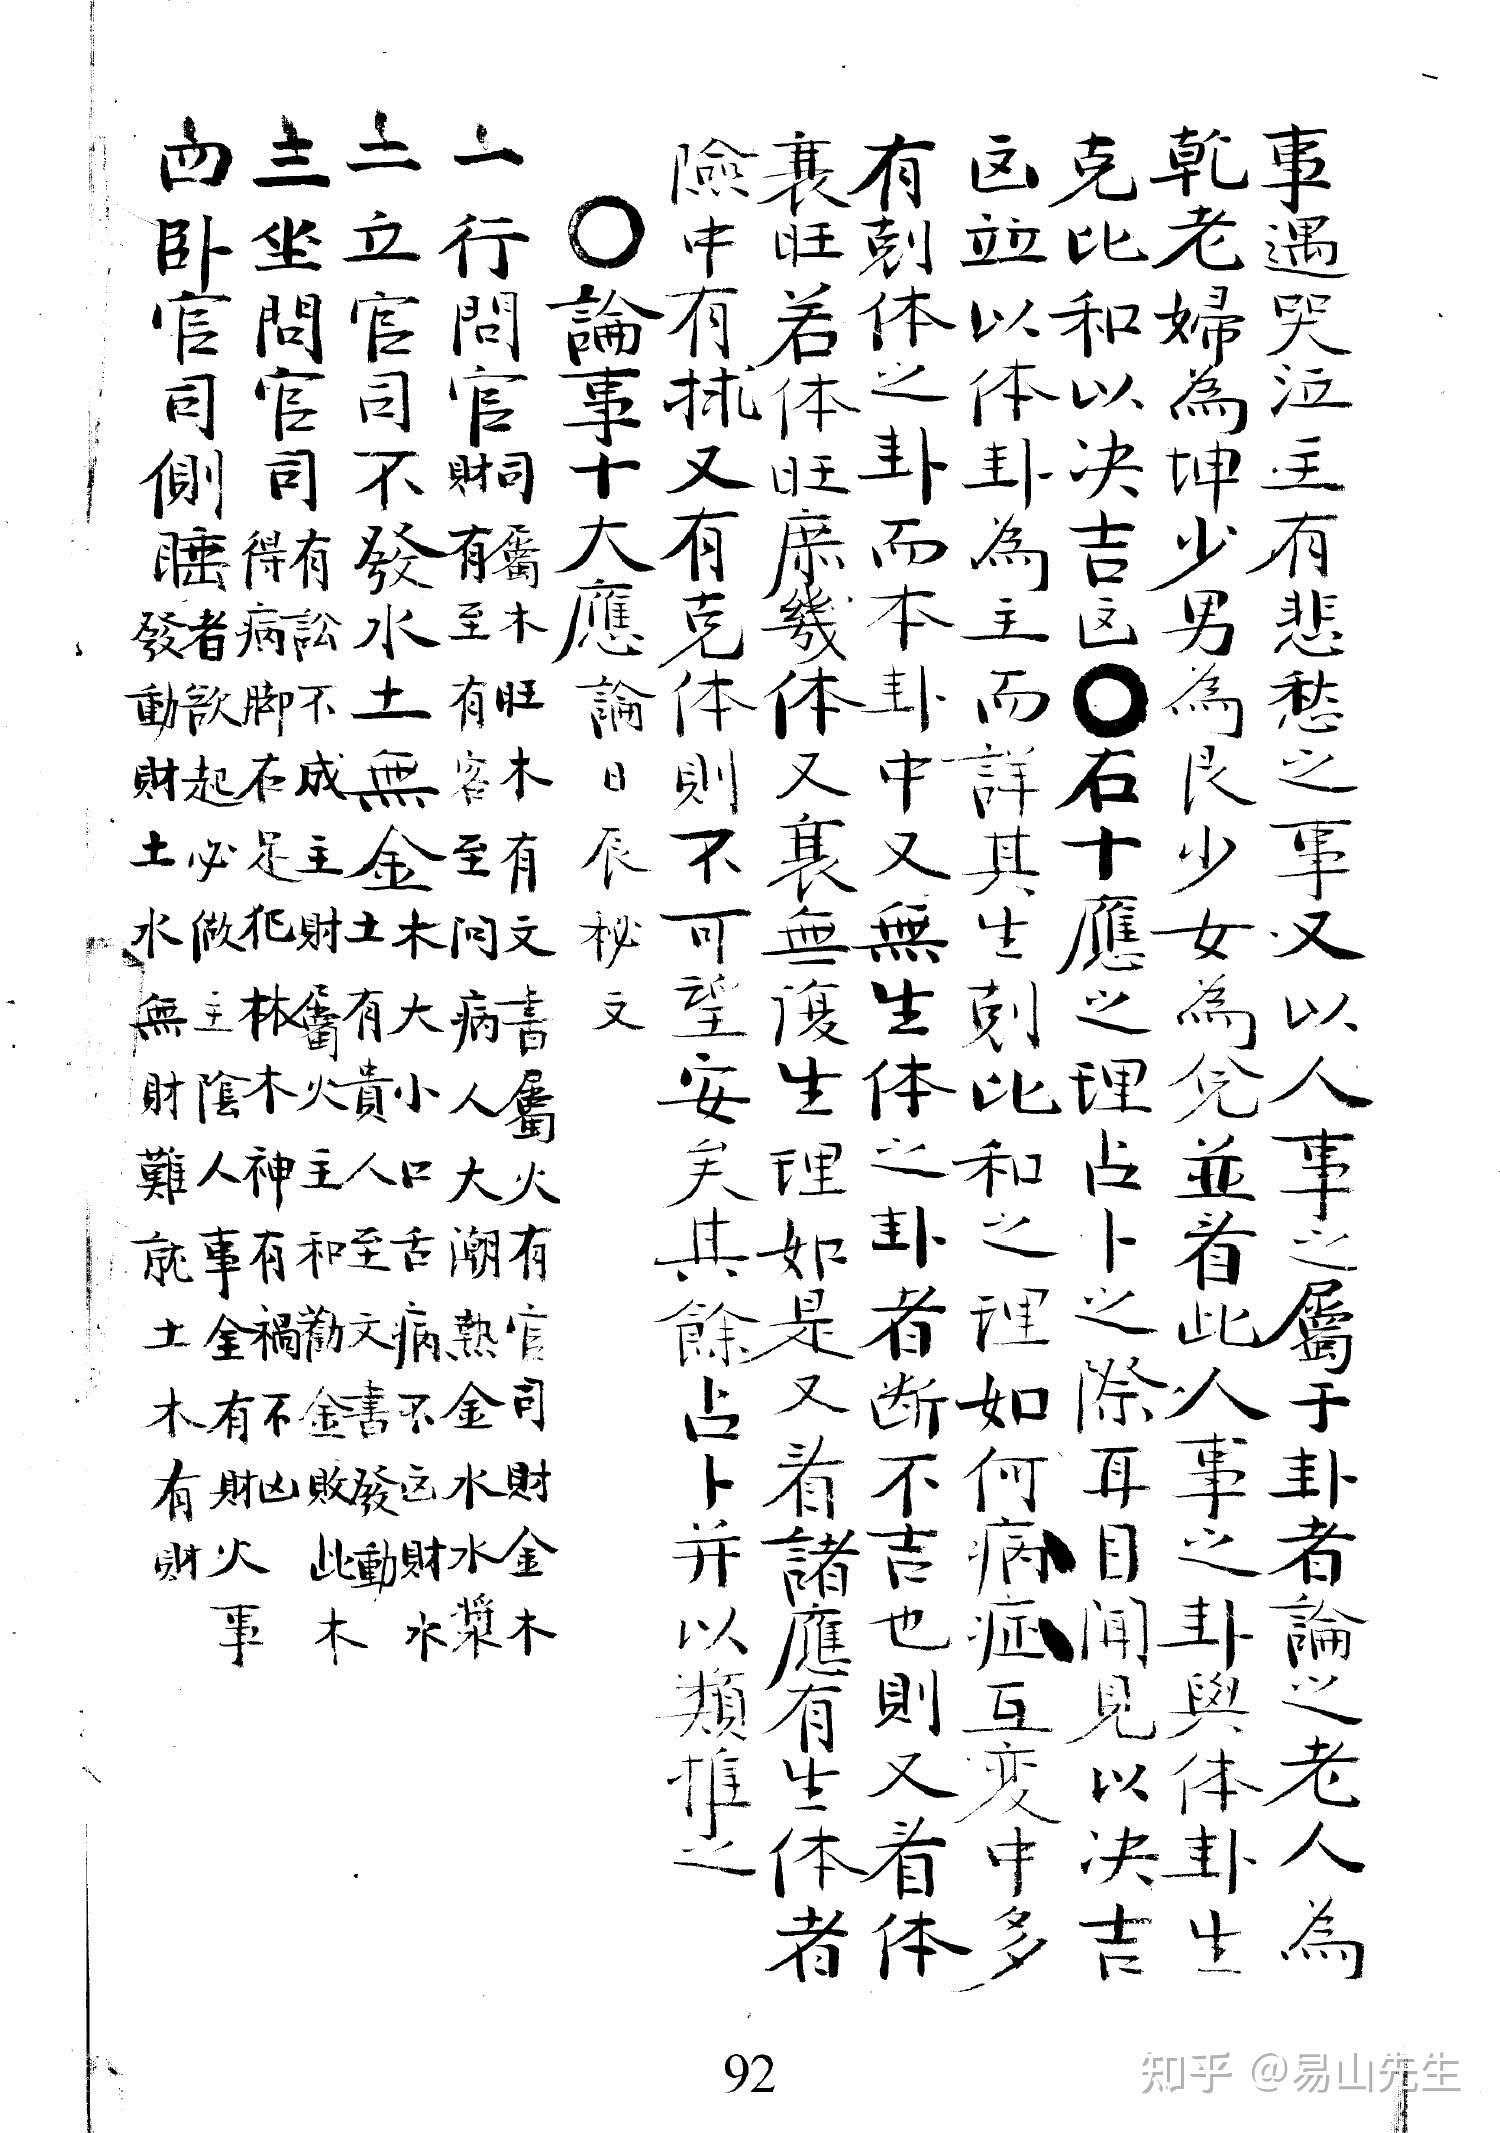 事遇哭泣主有悲愁之事又以人事之屬于卦者論之老人為
乾老婦為坤少男為艮少女為兌並看此人事之卦與体卦生
克比和以決吉凶〇右十應之理占卜之際耳目聞見以決吉
凶並以体卦為主而詳其生剋比和之理如何病症互変中多
有剋体之卦而本卦中又無生体之卦者断不吉也則又看体
衰旺若体旺庶幾体又衰無復生理如是又看諸應有生体者
險中有救又有克体則不可望安矣其餘占卜并以類推之
〇論事十大應論日辰秘文
一行問官司屬木旺木有文書屬火有官司財金木
財有至有客至问病人大潮熱金水水漿
二立官司不發水土無金木大小口舌病不凶財水
土有貴人至文書發動
三坐問官司有訟不成主財屬火主和勸金敗此木
得病脚右足犯林木神有禍不凶
四卧官司側睡者欲起必做主陰人事金有財火事
發動財土水無財難就土木有財
92
知乎 @易山先生